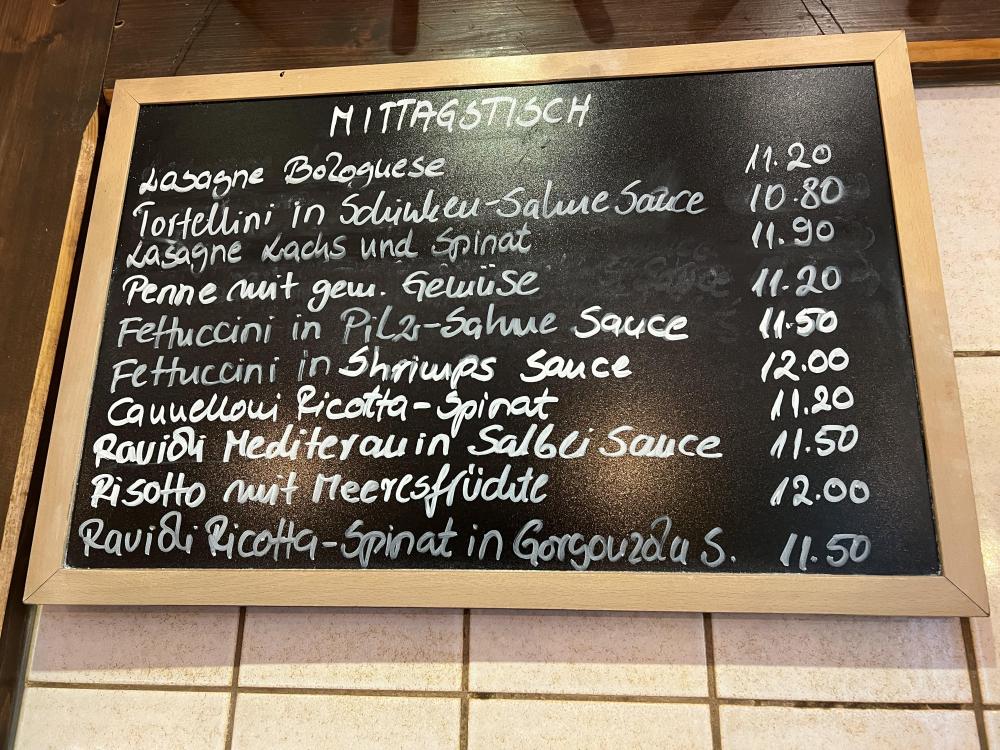 MITTAGSTISCH
Lasagne Bolognese 11.20
Tortellini in Schinken-Sahne Sauce 10.80
Lasagne Lachs und Spinat 11.90
Penne mit gem. Gemüse 11.20
Fettuccini in Pilz-Sahne Sauce 11.50
Fettuccini in Shrimps Sauce 12.00
Cannelloni Ricotta-Spinat 11.20
Ravioli Mediteran in Salbei Sauce 11.50
Risotto mit Meeresfrüchte 12.00
Ravioli Ricotta-Spinat in Gorgonzola S. 11.50